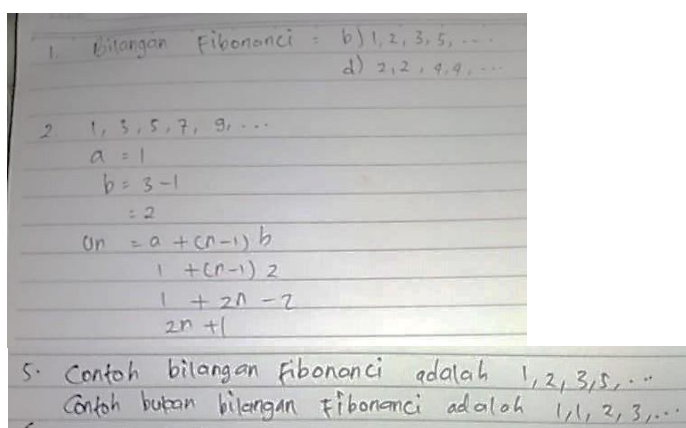 1. Bilangan Fibonanci = b) 1, 2, 3, 5, ....
d) 2, 2, 4, 4, ...
2. 1, 3, 5, 7, 9, ...
a = 1
b = 3 - 1
= 2
Un = a + (n-1) b
1 + (n-1) 2
1 + 2n - 2
2n + 1
5. Contoh bilangan Fibonanci adalah 1, 2, 3, 5, ...
Contoh bukan bilangan Fibonanci adalah 1, 1, 2, 3, ...